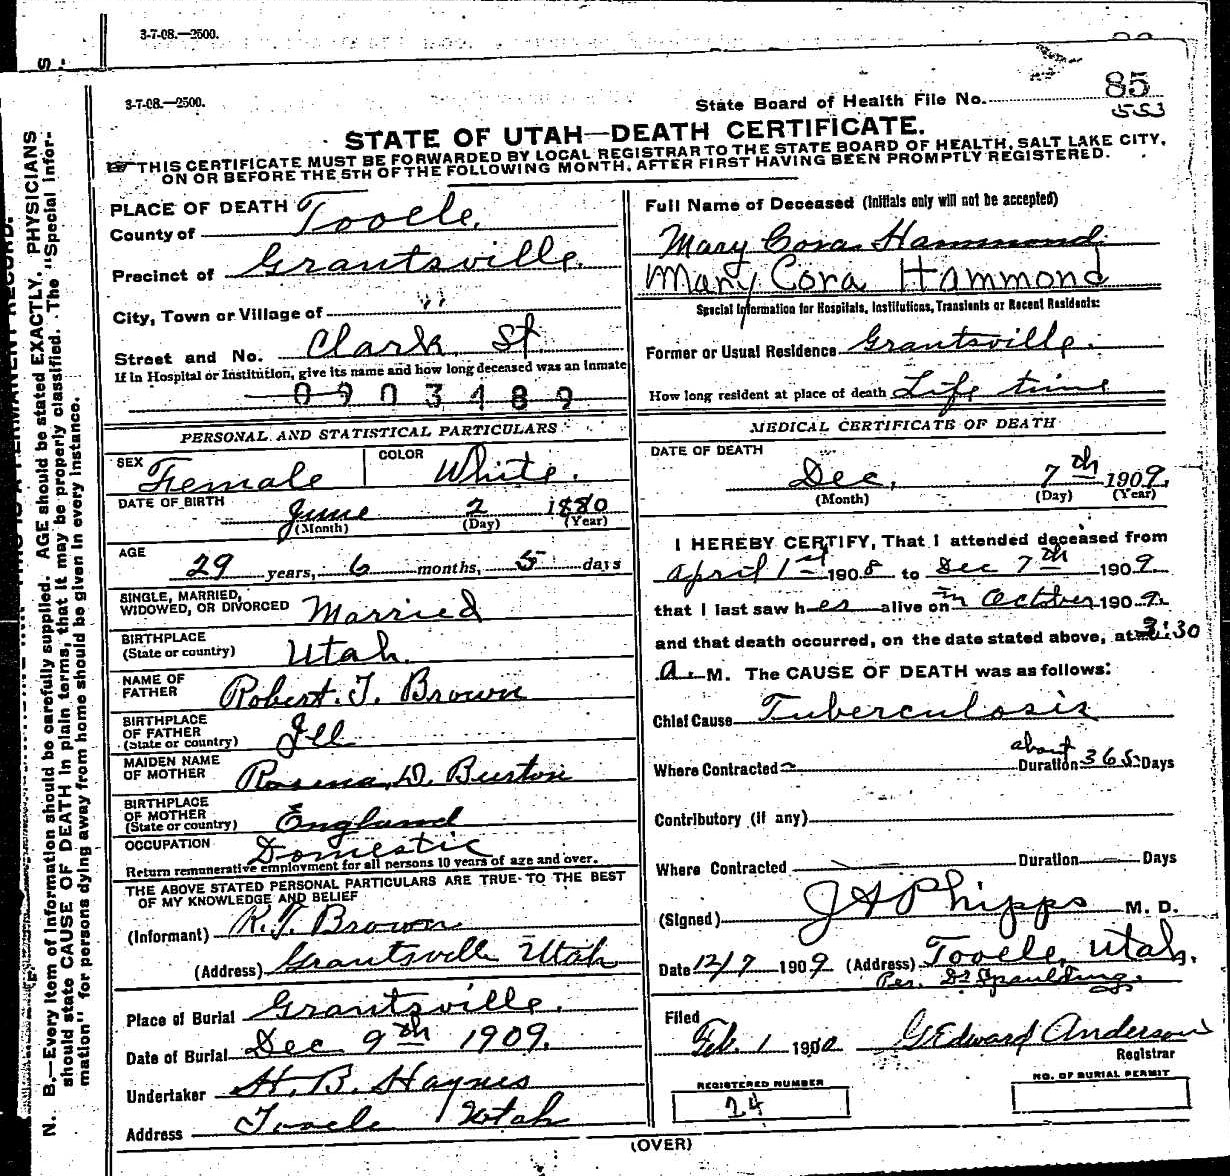 3-7-08.—2500.
S.
3-7-08.—2500.
State Board of Health File No. 85
553
STATE OF UTAH—DEATH CERTIFICATE.
THIS CERTIFICATE MUST BE FORWARDED BY LOCAL REGISTRAR TO THE STATE BOARD OF HEALTH, SALT LAKE CITY,
ON OR BEFORE THE 5TH OF THE FOLLOWING MONTH, AFTER FIRST HAVING BEEN PROMPTLY REGISTERED.
PLACE OF DEATH
County of Tooele.
Precinct of Grantsville.
City, Town or Village of " "
Street and No. Clark St.
If in Hospital or Institution, give its name and how long deceased was an inmate
0903489
PERSONAL AND STATISTICAL PARTICULARS
SEX Female COLOR White.
DATE OF BIRTH June 2 1880
(Month) (Day) (Year)
AGE 29 years, 6 months, 5 days
SINGLE, MARRIED,
WIDOWED, OR DIVORCED Married
BIRTHPLACE
(State or country) Utah.
NAME OF
FATHER Robert. T. Brown
BIRTHPLACE
OF FATHER
(State or country) Ill
MAIDEN NAME
OF MOTHER Rosena D. Burton
BIRTHPLACE
OF MOTHER
(State or country) England
OCCUPATION Domestic
Return remunerative employment for all persons 10 years of age and over.
THE ABOVE STATED PERSONAL PARTICULARS ARE TRUE TO THE BEST
OF MY KNOWLEDGE AND BELIEF
(Informant) R.T. Brown
(Address) Grantsville Utah
Place of Burial Grantsville.
Date of Burial Dec 9th 1909.
Undertaker H. B. Haynes
Address Tooele Utah
Full Name of Deceased (Initials only will not be accepted)
Mary Cora Hammond.
Mary Cora Hammond
Special Information for Hospitals, Institutions, Transients or Recent Residents:
Former or Usual Residence Grantsville.
How long resident at place of death Life time
MEDICAL CERTIFICATE OF DEATH
DATE OF DEATH
Dec, 7th 1909.
(Month) (Day) (Year)
I HEREBY CERTIFY, That I attended deceased from
April 1st 1908 to Dec 7th 1909
that I last saw her alive on in October 1909.
and that death occurred, on the date stated above, at :30
a. M. The CAUSE OF DEATH was as follows:
Chief Cause Tuberculosis
Where Contracted about Duration 365 Days
Contributory (if any)
Where Contracted Duration Days
(Signed) JA Phipps M. D.
Date 12/7 1909 (Address) Tooele, Utah.
Per. Dr Spaulding.
Filed
Feb. 1 1910 G Edward Anderson
Registrar
REGISTERED NUMBER
24
NO. OF BURIAL PERMIT
(OVER)
N. B.—Every item of information should be carefully supplied. AGE should be stated EXACTLY. PHYSICIANS
should state CAUSE OF DEATH in plain terms, that it may be properly classified. The "Special Infor-
mation" for persons dying away from home should be given in every instance.